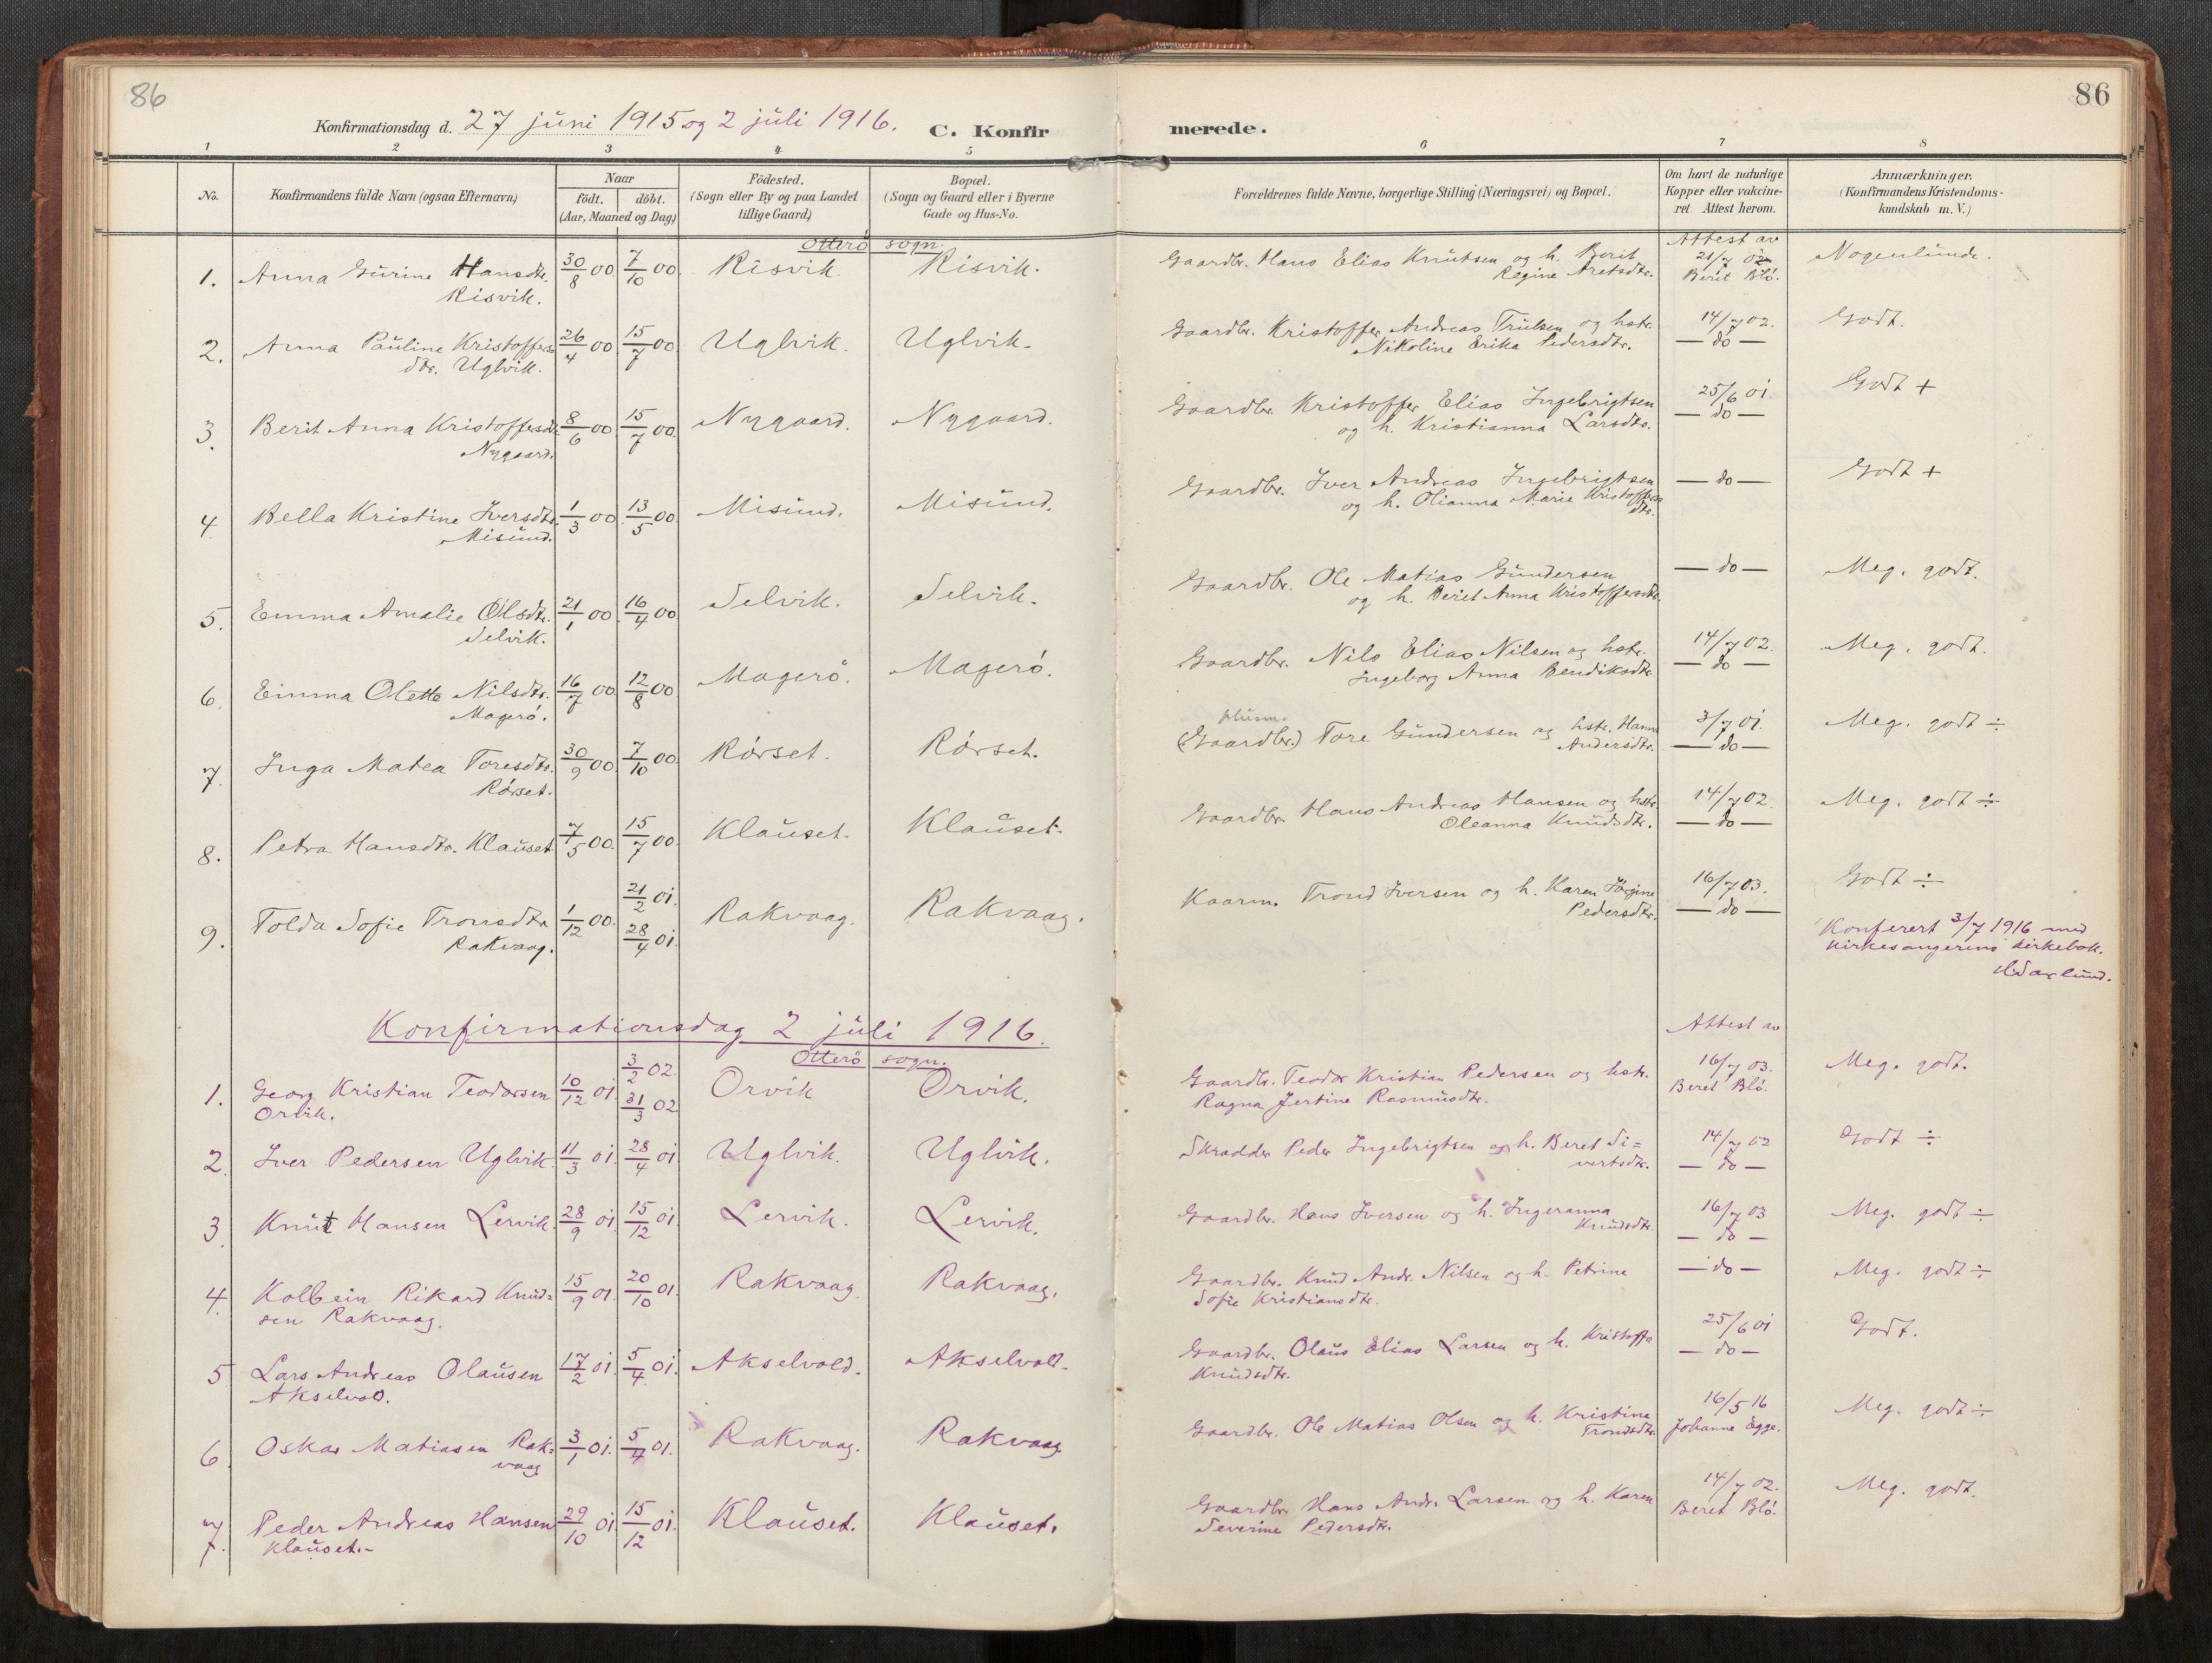 86
86
Konfirmationsdag d. 27 juni 1915 og 2 juli 1916.
C. Konfirmerede.
1 2 3 4 5 6 7 8
No.
Konfirmandens fulde Navn (ogsaa Efternavn)
Naar
födt. döbt.
(Aar, Maaned og Dag)
Födested.
(Sogn eller By og paa Landet
tillige Gaard)
Bopæl.
(Sogn og Gaard eller i Byerne
Gade og Hus-No.
Forældrenes fulde Navne, borgerlige Stilling (Næringsvei) og Bopæl.
Om havt de naturlige
Kopper eller vaccine-
ret. Attest herom.
Anmærkninger.
(Konfirmandens Kristendoms-
kundskab m. V.)
Otterö sogn.
Attest av
1. Anna Gurine Hansdtr. 30/8 00. 7/10 00. Risvik. Risvik. Gaardbr. Hans Elias Knutsen og h. Berit 21/7 02 Nogenlunde.
Risvik. Regine Aretsdtr. Berit Blö.
2. Anna Pauline Kristoffers- 26/4 00 15/7 00 Uglvik. Uglvik. Gaardbr. Kristoffer Andreas Trulsen og hstr. 14/7 02. Godt.
dtr. Uglvik. Nikoline Erika Pedersdtr. — do —
3. Berit Anna Kristoffersdtr. 8/6 00 15/7 00. Nygaard. Nygaard. Gaardbr. Kristoffer Elias Ingebrigtsen 25/6 01. Godt +
Nygaard. og h. Kristianna Larsdtr. — do —
4. Bella Kristine Iversdtr. 1/3 00 13/5 00 Misund. Misund. Gaardbr. Iver Andreas Ingebrigtsen — do — Godt +
Misund. og h. Olianna Marie Kristoffers
dtr.
5. Emma Amalie Olsdtr. 21/1 00 16/4 00 Selvik. Selvik. Gaardbr. Ole Matias Gundersen — do — Meg. godt.
Selvik. og h. Berit Anna Kristoffersdtr.
6. Emma Olette Nilsdtr. 16/7 00 12/8 00 Magerö. Magerö. Gaardbr. Nils Elias Nilsen og hstr. 14/7 02. Meg. godt.
Magerö. Ingeborg Anna Bendiksdtr. — do —
7. Inga Matea Toresdtr. 30/9 00. 7/10 00. Rörset. Rörset. (Gaardbr.) Tore Gundersen og hstr. Hanna 3/7 01. Meg. godt ÷
Rörset. Andersdtr. — do —
8. Petra Hansdtr. Klauset 7/5 00. 15/7 00 Klauset. Klauset. Gaardbr. Hans Andreas Hansen og hstr. 14/7 02. Meg. godt ÷
Oleanna Knudsdtr. — do —
9. Tolda Sofie Tronsdtr. 1/12 00. 21/2 01. 28/4 01. Rakvaag. Rakvaag. Kaarm. Trond Iversen og h. Karen Jörgine 16/7 03. Godt ÷
Rakvaag. Pedersdtr. — do —
Konferert 3/7 1916 med
kirkesangerens kirkebok.
Konfirmationsdag 2 juli 1916.
Otterö sogn.
Attest av
1. Georg Kristian Teodorsen 10/12 01. 3/2 02. 31/3 02 Orvik Orvik. Gaardbr. Teodor Kristian Pedersen og hstr. 16/7 03. Meg. godt.
Orvik. Ragna Jertine Rasmusdtr. Beret Blö.
2. Iver Pedersen Uglvik. 11/3 01. 28/4 01. Uglvik. Uglvik. Skradder Peder Ingebrigtsen og h. Beret Si= 14/7 02 Godt ÷
vertsdtr. — do —
3. Knut Hansen Lervik. 28/9 01 15/12 01. Lervik. Lervik. Gaardbr. Hans Iversen og h. Ingeranna 16/7 03 Meg. godt ÷
Knudsdtr. — do —
4. Kolbein Rikard Knud= 15/9 01. 20/10 01. Rakvaag. Rakvaag. Gaardbr. Knud Andr. Nilsen og h. Petrine — do — Meg. godt ÷
sen Rakvaag. Sofie Kristiansdtr.
5 Lars Andreas Olausen 17/2 01. 5/4 01. Akselvold. Akselvold. Gaardbr. Olaus Elias Larsen og h. Kristoffa 25/6 01 Godt.
Akselvold. Knudsdtr. — do —
6 Oskar Matiasen Rak= 3/1 01. 5/4 01. Rakvaag. Rakvaag Gaardbr. Ole Matias Olsen og h. Kristine 16/5 16 Meg. godt ÷
vaag Trondsdtr. Johanne Egge.
7. Peder Andreas Hansen 29/10 01. 15/12 01. Klauset. Klauset. Gaardbr. Hans Andr. Larsen og h. Karen 14/7 02. Meg. godt.
Klauset.- Severine Pedersdtr. Beret Blö.